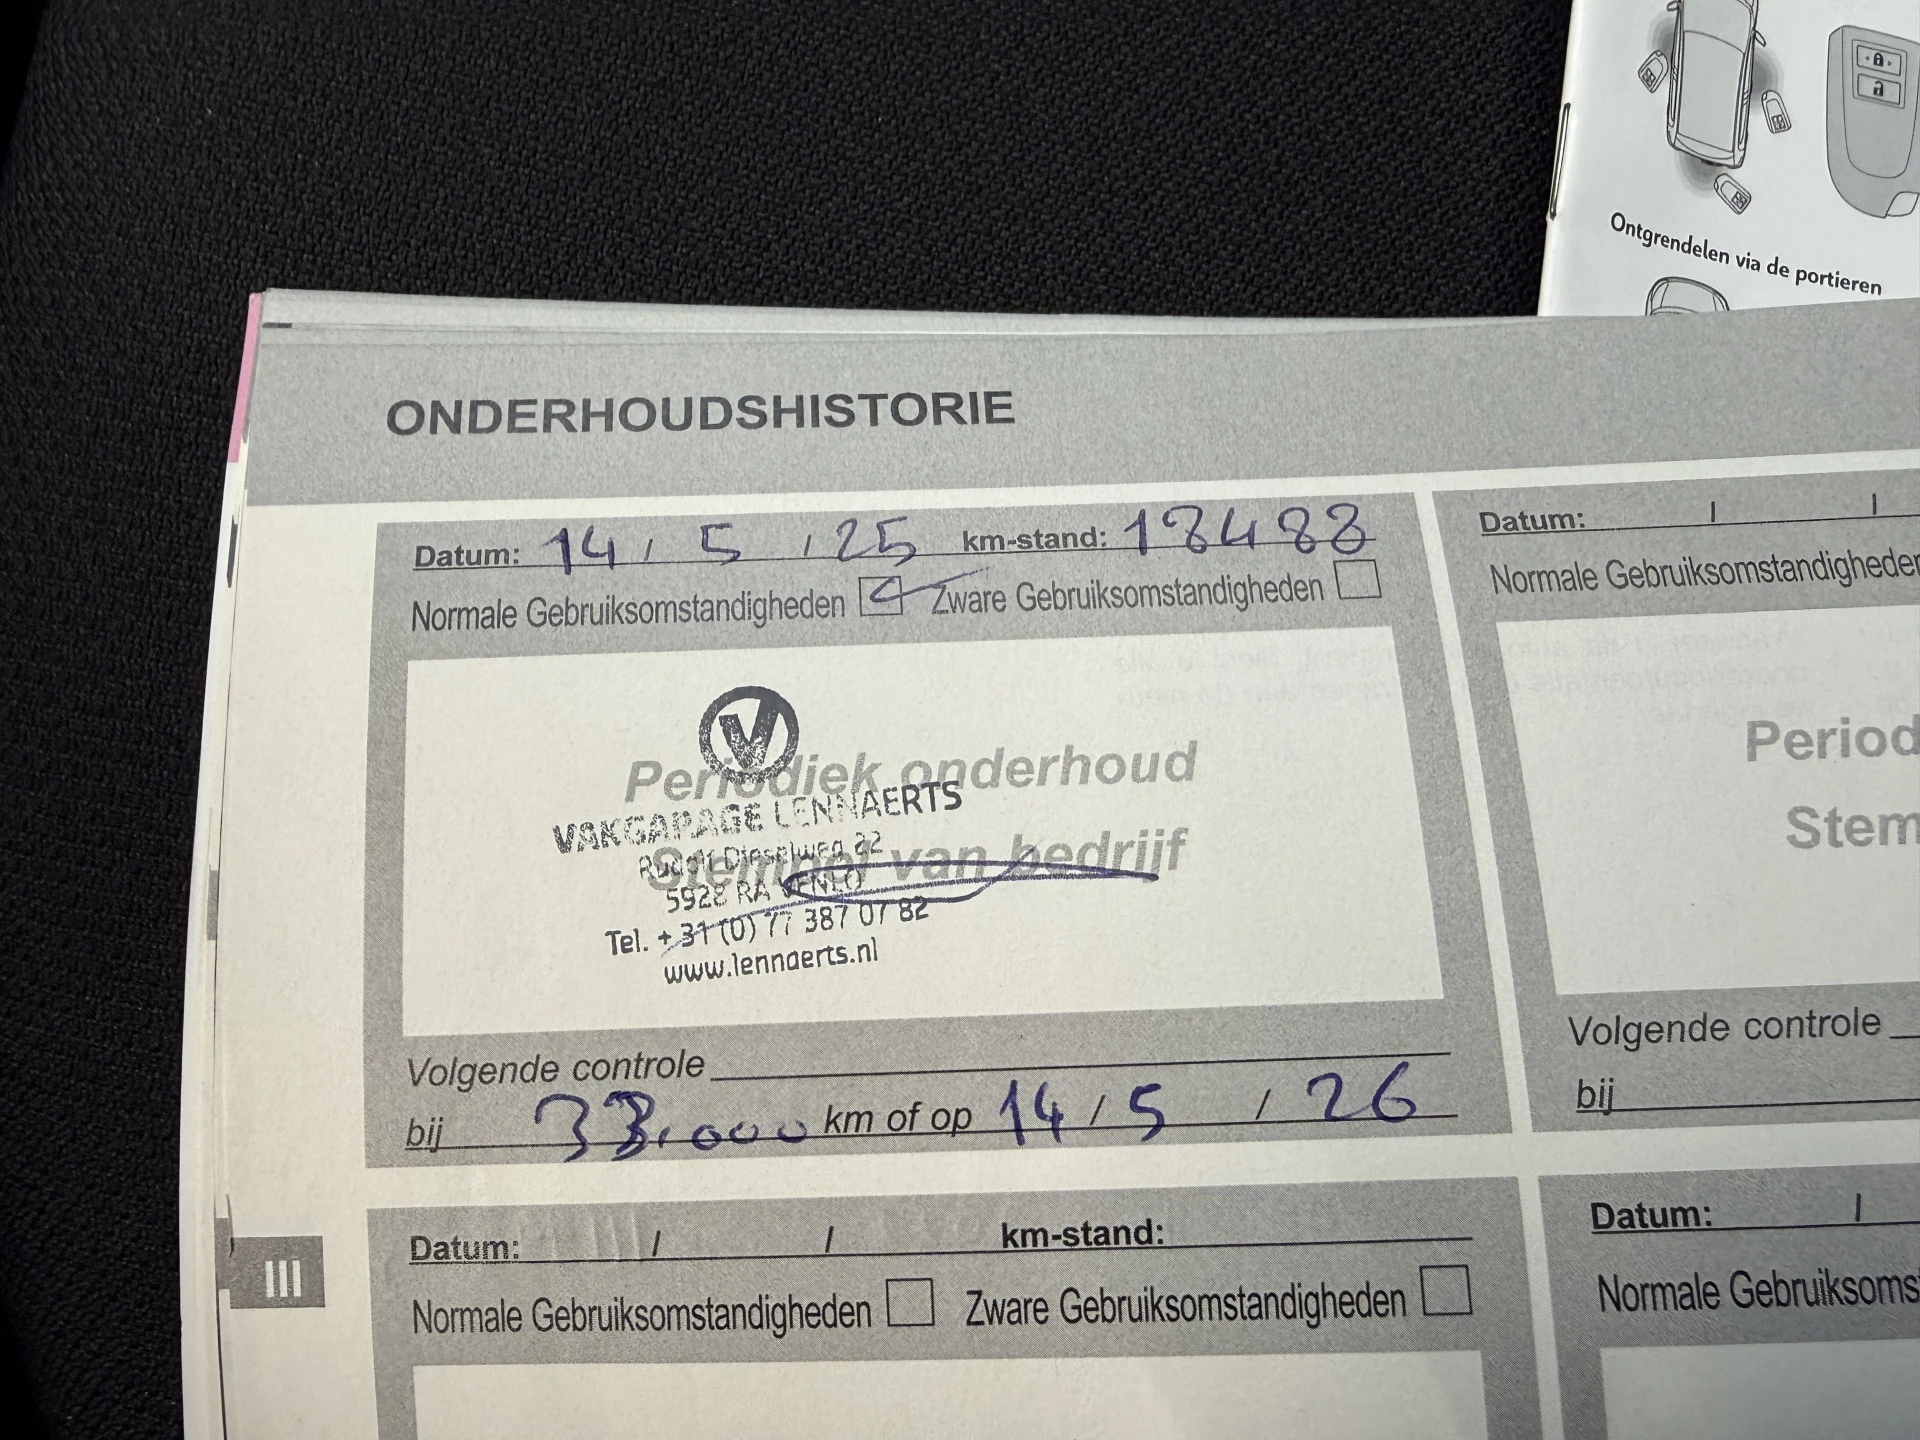 Ontgrendelen via de portieren
ONDERHOUDSHISTORIE
Datum: 14 / 5 / 25 km-stand: 18488
Normale Gebruiksomstandigheden Zware Gebruiksomstandigheden
V
Periodiek onderhoud
VAKGARAGE LENNAERTS
Rudolf Dieselweg 22
Stempel van bedrijf
5928 RA VENLO
Tel. +31 (0) 77 387 07 82
www.lennaerts.nl
Volgende controle
bij 33.000 km of op 14 / 5 / 26
Datum: / / km-stand:
Normale Gebruiksomstandigheden Zware Gebruiksomstandigheden
III
Datum: / /
Normale Gebruiksomstandigheden
Period
Stem
Volgende controle
bij
Datum: /
Normale Gebruiksoms